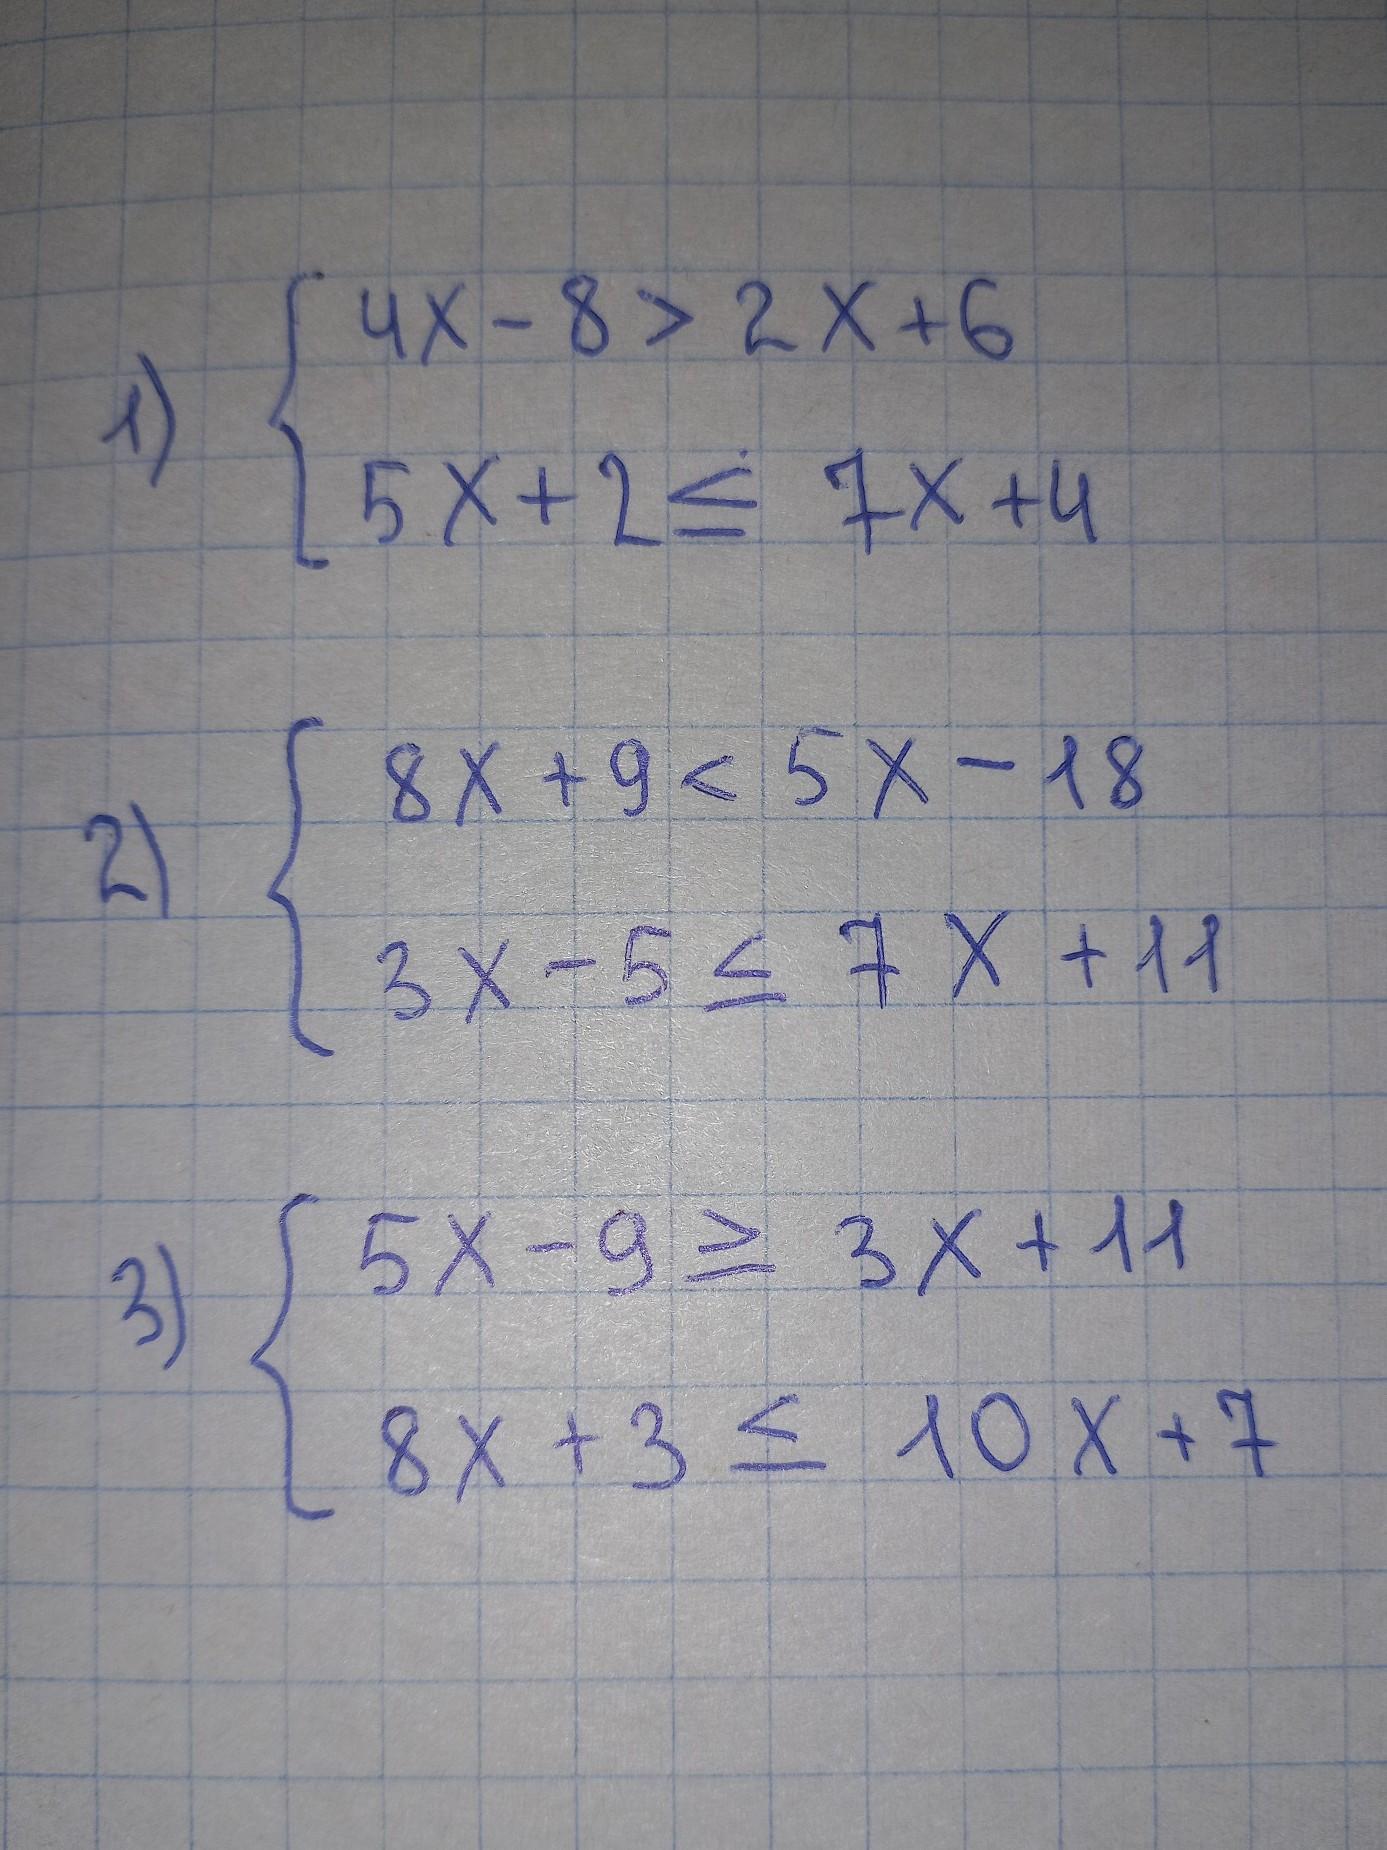 1) { 4x - 8 > 2x + 6
5x + 2 ≤ 7x + 4
2) { 8x + 9 < 5x - 18
3x - 5 ≤ 7x + 11
3) { 5x - 9 ≥ 3x + 11
8x + 3 ≤ 10x + 7